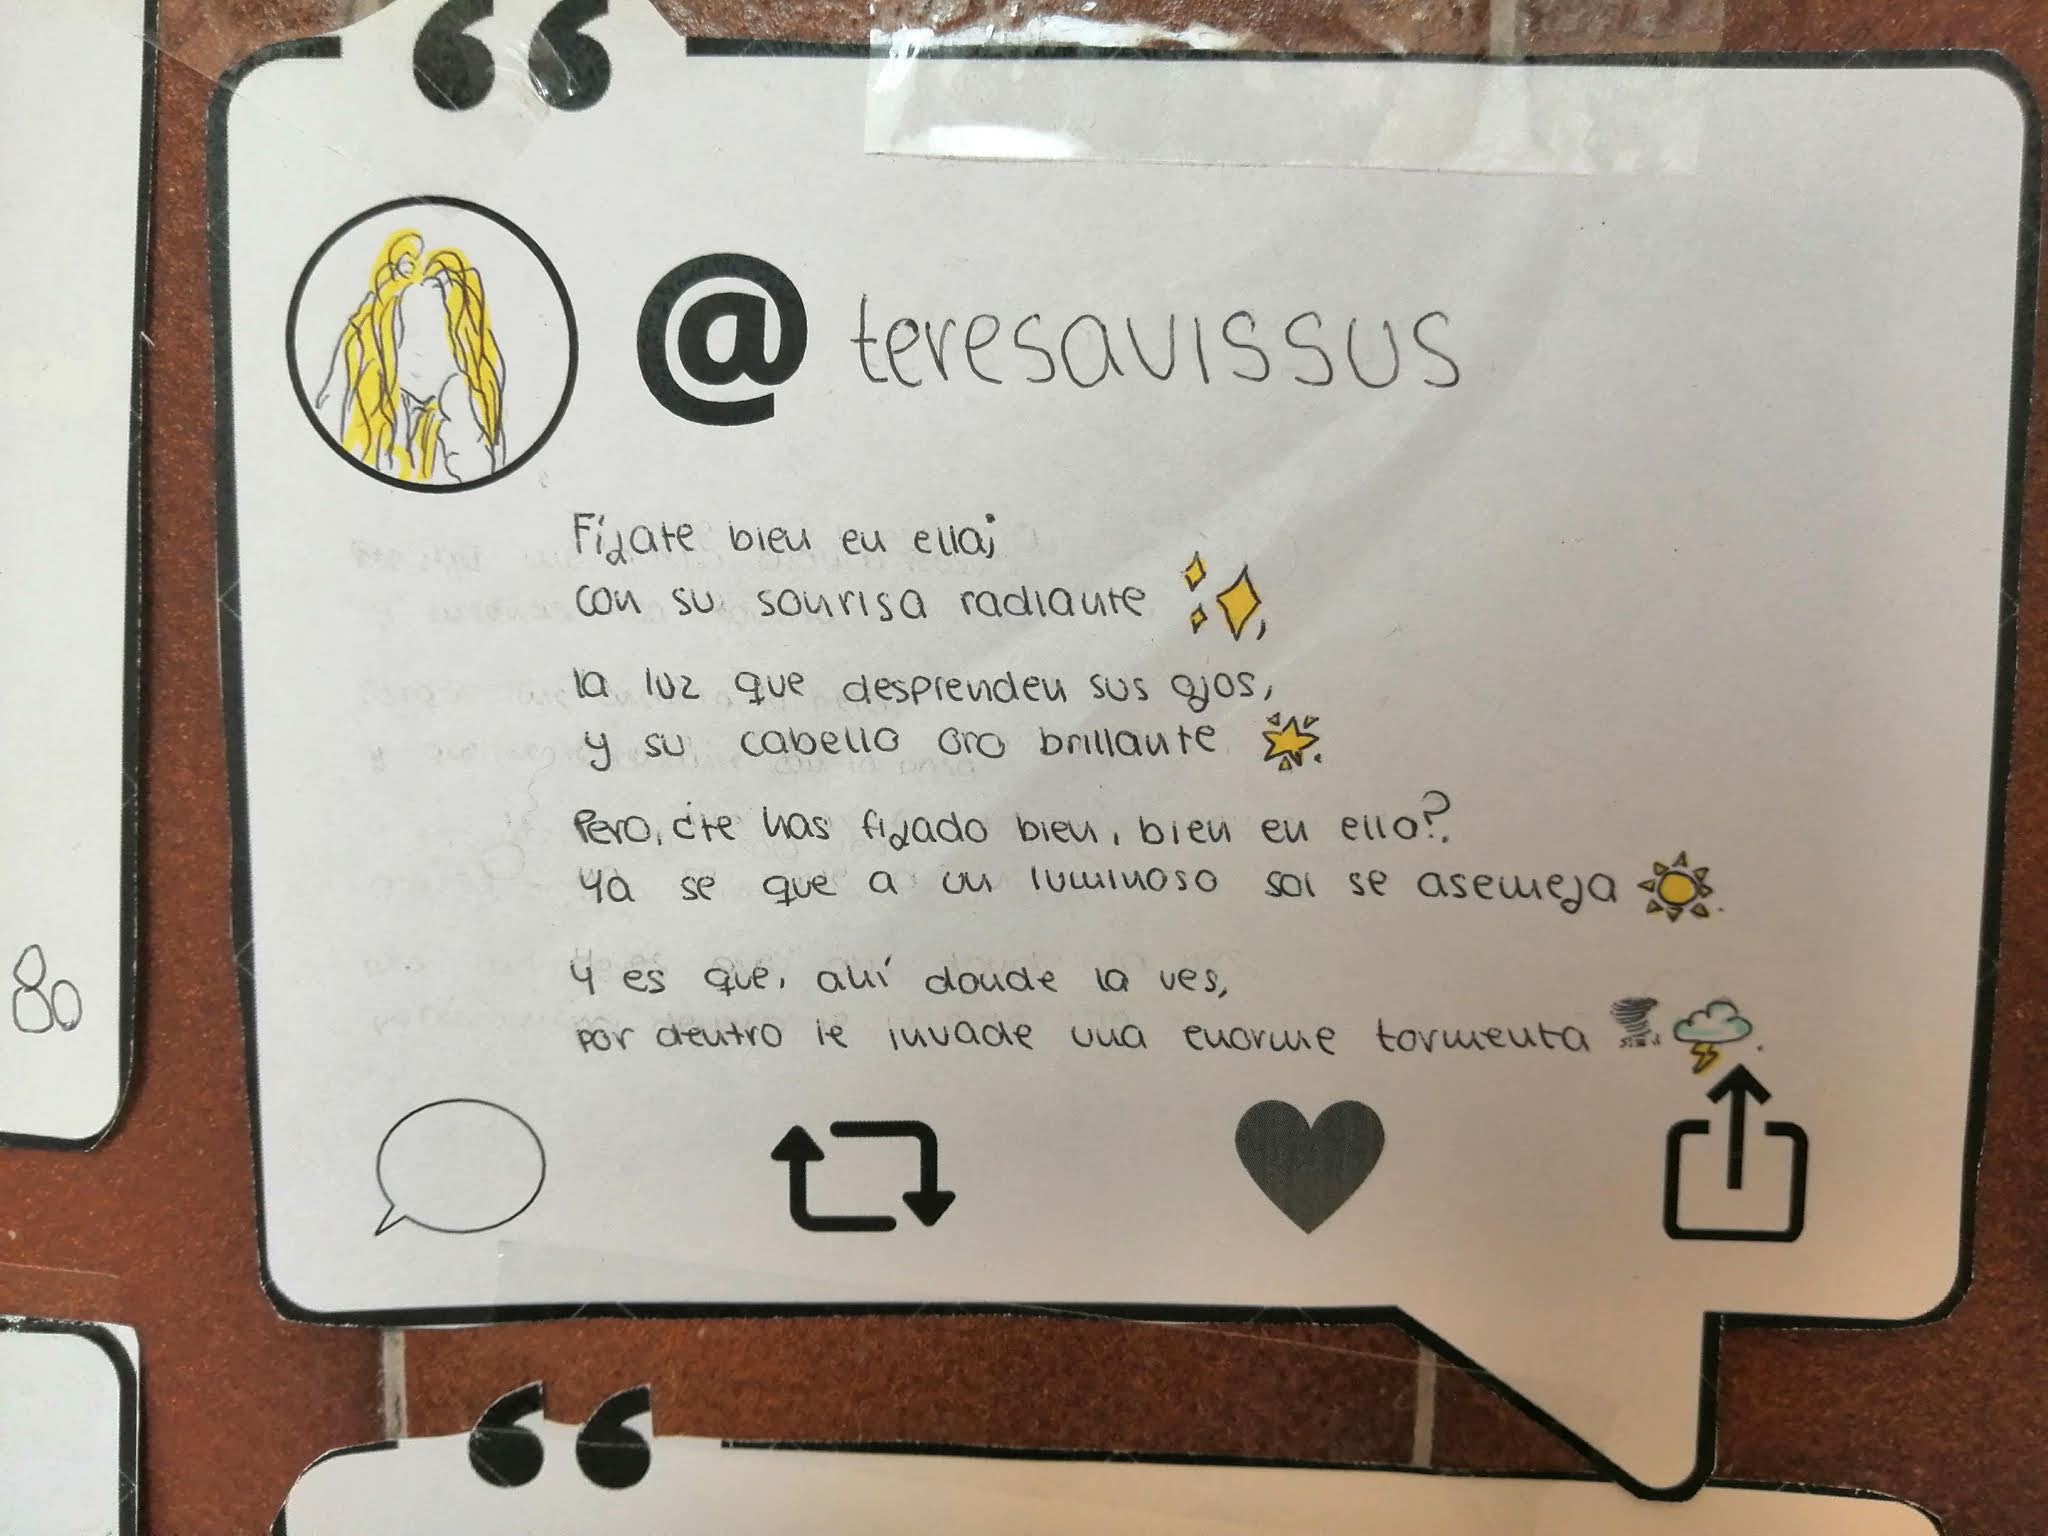 “
@teresavissus
Fíjate bien en ella;
con su sonrisa radiante,
la luz que desprenden sus ojos,
y su cabello oro brillante.
Pero, ¿te has fijado bien, bien en ello?.
Ya se que a un luminoso sol se asemeja.
Y es que, ahí donde la ves,
por dentro le invade una enorme tormenta.
80
“